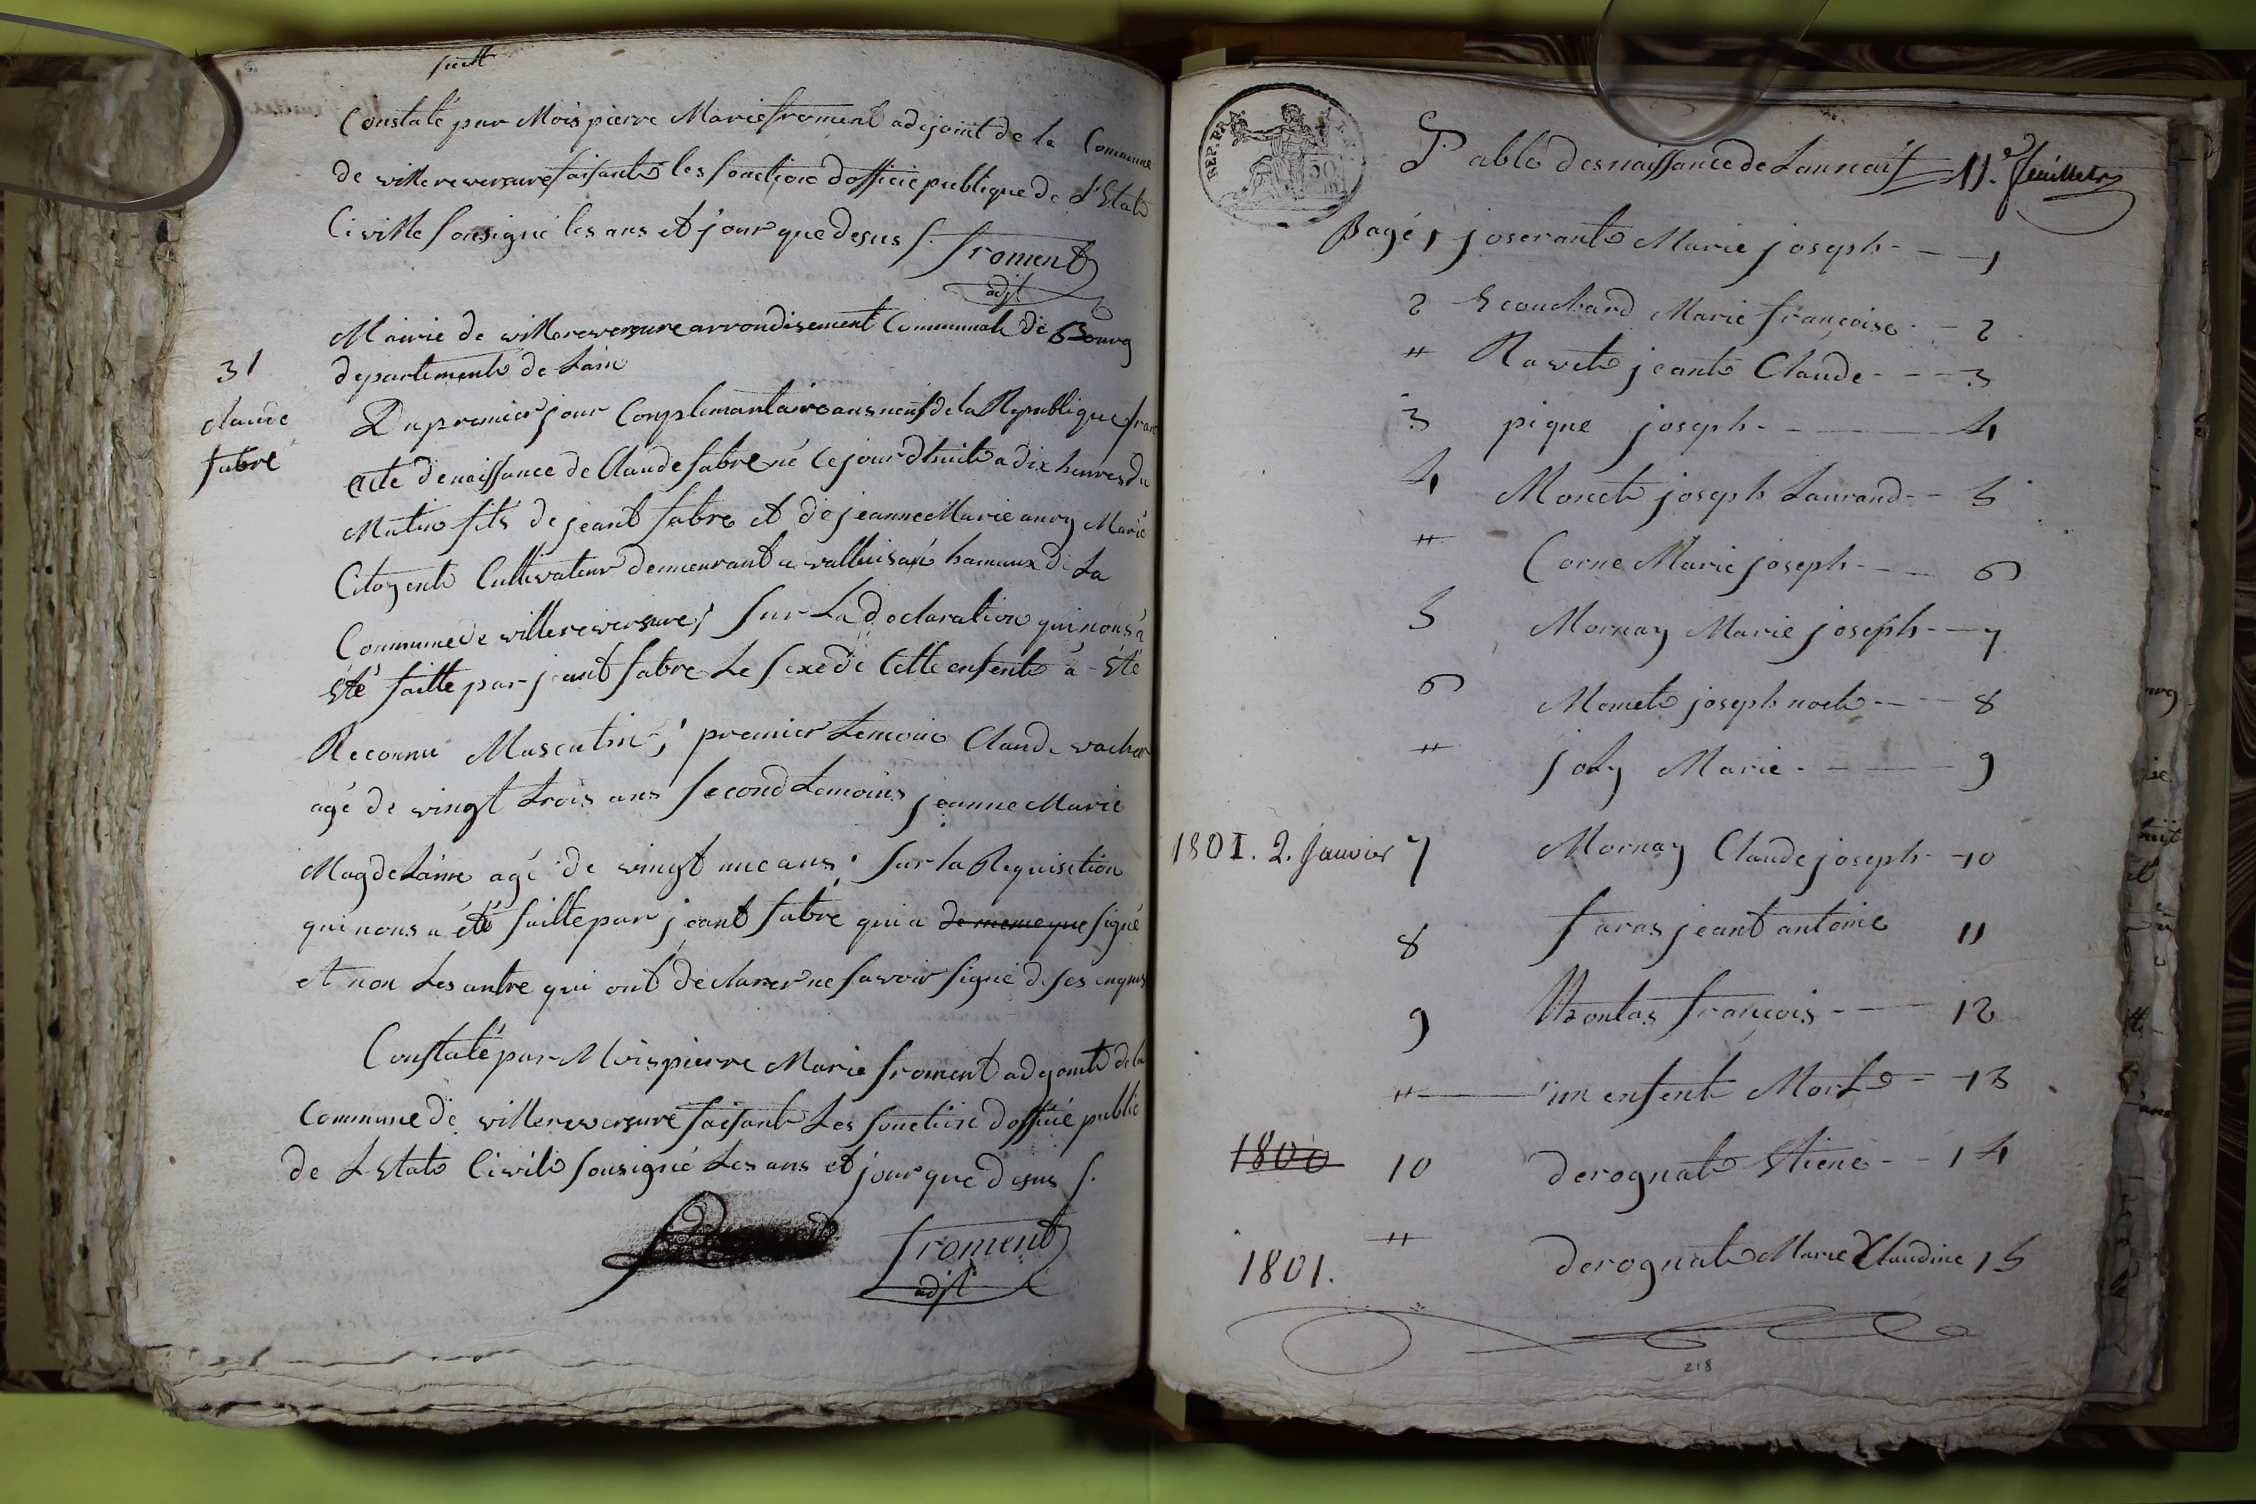 suitt
Constaté par Mois pierre Marie froment adejoint de la Commune
de villereversure faisante les fonctione dofficie publique de L'Etate
Civille sousigné les ans et jour que desus f. froment
adjt
31
Claude
fabre
Mairie de villereversure arrondisement Communale de Bourg
departemente de Lain
Du premier jour Conplimantaire ans neuf de la Republique fran
acte denaissance de Claude fabre né Cejourdhuit a dix heures du
Matin fils de jeant fabre et de jeanne Marie anry Marié
Citoyente Cultivateur demeurant a valluisant hamaux de La
Commune de villereversure; sur La declaration qui nous a
Eté faitte par jeant fabre Le sexe de Cette enfente a Eté
Reconnu Masculin; premier temoins Claude vacher
agé de vingt trois ans second temoins jeanne Marie
Magdelaine agé de vingt un ans; sur la Requisition
qui nous a été faitte par jeant fabre qui a de meme que signé
et non Les antre qui ont declarer ne savoir signé de ses enquis
Constaté par Mois pierre Marie froment adejointe de la
Commune de villereversure faisante Les fonctione dofficié public
de LEtate Civile sousigné Les ans et jour que desus f.
froment
adjt
REP. FRA.
Table des naissance de Lan neuf 11.e feuillet
Pagé 1 joserante Marie joseph - - 1
2 Ecouchard Marie françoise - - 2
" Ravete jeante Claude - - - 3
3 pique joseph - - 4
4 Morete joseph Laurand - - 5
" Corne Marie joseph - - 6
5 Mornay Marie joseph - - 7
6 Momete joseph noele - - 8
" joly Marie - - - 9
1801. 2. Janvier 7 Mornay Claude joseph - 10
8 faras jeant antoine 11
9 Montas françois - - 12
" un enfente Morte - 13
1800 10 derognate Etiene - - 14
1801. " derognate Marie Claudine 15
218